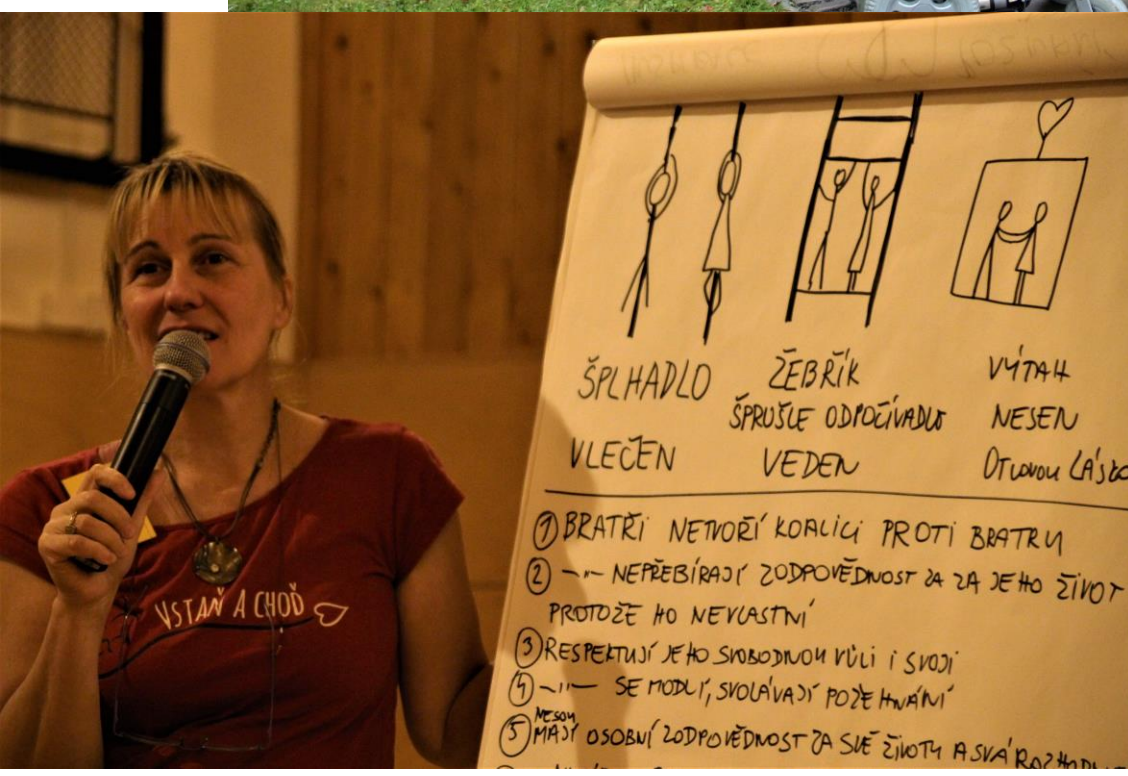 VSTAŇ A CHOĎ
ŠPLHADLO ŽEBŘÍK VÝTAH
ŠPRUŠLE ODPOČÍVADLO NESEN
VLEČEN VEDEN OTCOVOU LÁSKO
1 BRATŘI NETVOŘÍ KOALICI PROTI BRATRU
2 —"— NEPŘEBÍRAJÍ ZODPOVĚDNOST ZA ZA JEHO ŽIVOT
PROTOŽE HO NEVLASTNÍ
3 RESPEKTUJÍ JEHO SVOBODNOU VŮLI I SVOJI
4 —"— SE MODLÍ, SVOLÁVAJÍ POŽEHNÁNÍ
NESOU
5 MAJÍ OSOBNÍ ZODPOVĚDNOST ZA SVÉ ŽIVOTY A SVÁ